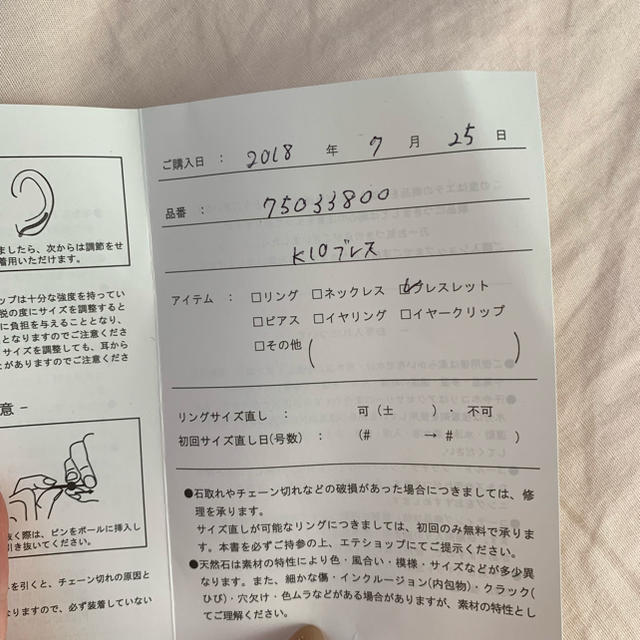 ましたら、次からは調節をせ
着用いただけます。
ップは十分な強度を持ってい
脱の度にサイズを調整すると
に負担を与えることとなり、
となりますのでご注意くださ
サイズを調整しても、耳から
とがありますのでご注意くだ
意 -
抜く際は、ピンをボールに挿入し
引き抜いてください。
を引くと、チェーン切れの原因と
なりますので、必ず装着していない
ご購入日 : 2018 年 7 月 25 日
品番 : 75033800
K10ブレス
アイテム : □リング □ネックレス □ブレスレット
□ピアス □イヤリング □イヤークリップ
□その他 ( )
リングサイズ直し : 可 (± ) ・ 不可
初回サイズ直し日(号数) : (# → # )
●石取れやチェーン切れなどの破損があった場合につきましては、修
理を承ります。
サイズ直しが可能なリングにつきましては、初回のみ無料で承りま
す。本書を必ずご持参の上、エテショップにてご提示ください。
●天然石は素材の特性により色・風合い・模様・サイズなどが多少異
なります。また、細かな傷・インクルージョン(内包物)・クラック(
ひび)・穴欠け・色ムラなどがある場合がありますが、素材の特性とし
てご理解ください。